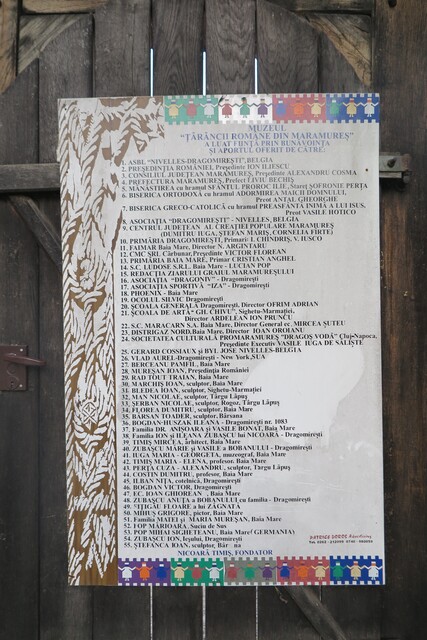 MUZEUL
"ȚĂRĂNCII ROMÂNE DIN MARAMUREȘ"
A LUAT FIINȚĂ PRIN BUNĂVOINȚA
ȘI APORTUL OFERIT DE CĂTRE:
1. ASBL "NIVELLES-DRAGOMIREȘTI", BELGIA
2. PREȘEDINȚIA ROMÂNIEI, Președinte ION ILIESCU
3. CONSILIUL JUDEȚEAN MARAMUREȘ, Președinte ALEXANDRU COSMA
4. PREFECTURA MARAMUREȘ, Prefect LIVIU BECHIȘ
5. MÂNĂSTIREA cu hramul SFÂNTUL PROROC ILIE, Stareț ȘOFRONIE PERȚA
6. BISERICA ORTODOXĂ cu hramul ADORMIREA MAICII DOMNULUI,
Preot ANȚAL GHEORGHE
7. BISERICA GRECO-CATOLICĂ cu hramul PREASFÂNTĂ INIMĂ A LUI ISUS,
Preot VASILE HOTICO
8. ASOCIAȚIA "DRAGOMIREȘTI" - NIVELLES, BELGIA
9. CENTRUL JUDEȚEAN AL CREAȚIEI POPULARE MARAMUREȘ
(DUMITRU IUGA, ȘTEFAN MARIȘ, CORNELIA FIRTE)
10. PRIMĂRIA DRAGOMIREȘTI, Primari: I. CHINDRIȘ, V. IUSCO
11. FAIMAR Baia Mare, Director N. ARGINTARU
12. CMC SRL Cărbunar, Președinte VICTOR FLOREAN
13. PRIMĂRIA BAIA MARE, Primar CRISTIAN ANGHEL
14. S.C. LUDOSE S.R.L. Baia Mare - LUCIAN POP
15. REDACȚIA ZIARULUI GRAIUL MARAMUREȘULUI
16. ASOCIAȚIA "DRAGONIV" - Dragomirești
17. ASOCIAȚIA SPORTIVĂ "IZA" - Dragomirești
18. PHOENIX - Baia Mare
19. OCOLUL SILVIC Dragomirești
20. ȘCOALA GENERALĂ Dragomirești, Director OFRIM ADRIAN
21. ȘCOALA DE ARTĂ "GH. CHIVU", Sighetu-Marmației,
Director ARDELEAN ION PRUNCU
22. S.C. MARACARN S.A. Baia Mare, Director General ec. MIRCEA ȘUTEU
23. DISTRIGAZ NORD, Baia Mare, Director IOAN OROIANU
24. SOCIETATEA CULTURALĂ PROMARAMUREȘ "DRAGOȘ VODĂ" Cluj-Napoca,
Președinte Executiv VASILE IUGA DE SĂLIȘTE
25. GERARD CONSIAUX și BYL JOSE NIVELLES-BELGIA
26. VLAD AUREL-Dragomirești - New York, SUA
27. BERCEANU PAMFIL, Baia Mare
28. MUREȘAN IOAN, Președinția României
29. RAD TOUT TRAIAN, Baia Mare
30. MARCHIȘ IOAN, sculptor, Baia Mare
31. BLEDEA IOAN, sculptor, Sighetu-Marmației
32. MAN NICOLAE, sculptor, Târgu Lăpuș
33. ȘERBAN NICOLAE, sculptor, Rogoz, Târgu Lăpuș
34. FLOREA DUMITRU, sculptor, Baia Mare
35. BÂRSAN TOADER, sculptor, Bârsana
36. BOGDAN-HUSZAK ILEANA - Dragomirești nr. 1083
37. Familia DR. ANIȘOARA și VASILE BONAT, Baia Mare
38. Familia ION și ILEANA ZUBAȘCU lui NICOARĂ - Dragomirești
39. TIMIȘ MIRCEA, arhitect, Baia Mare
40. ZUBAȘCU MARIE și VASILE a BOBANULUI - Dragomirești
41. IUGA MARIA - GEORGETA, muzeograf, Baia Mare
42. TIMIȘ MARIA - ELENA, profesor, Baia Mare
43. PERȚA CUZA - ALEXANDRU, sculptor, Târgu Lăpuș
44. COSTIN DUMITRU, profesor, Baia Mare
45. ILBAN NIȚA, cotelnică, Dragomirești
46. BOGDAN VICTOR, Dragomirești
47. EC. IOAN GHIOREAN, Baia Mare
48. ZUBAȘCU ANUȚA a BOBANULUI cu familia - Dragomirești
49. FLOARE a lui ZĂGNATĂ
50. MIHUȘ GRIGORE, pictor, Baia Mare
51. Familia MATEI și MARIA MUREȘAN, Baia Mare
52. POP MĂRIOARA, Suciu de Sus
53. POP MIHAI SIGHETEANU, Baia Mare (GERMANIA)
54. ZUBAȘCU ION, Ieșului, Dragomirești
55. ȘTEFANCA IOAN, sculptor,
NICOARĂ TIMIȘ, FONDATOR